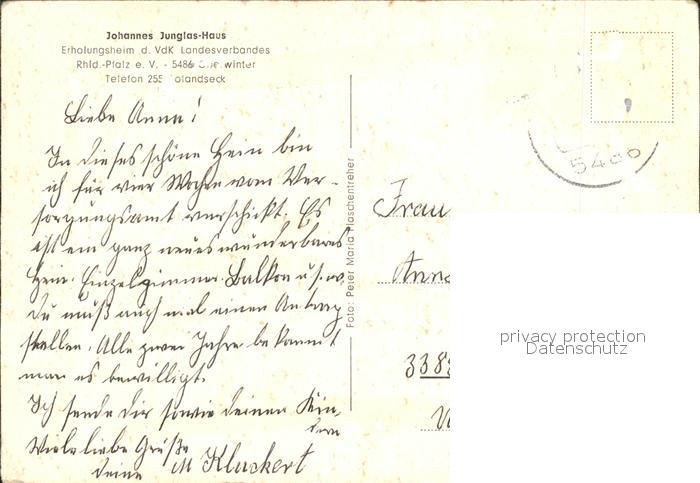 Johannes Junglas-Haus
Erholungsheim d. VdK Landesverbandes
Rhld.-Pfalz e. V. - 5486 winter
Telefon 255 olandseck
Liebe Anna!
In dieses schöne Heim bin
ich für vier Wochen vom Ver-
sorgungsamt verschickt. Es
ist ein ganz neues wunderbares
Heim. Einzelzimmer. Balkon u.s.w.
Du mußt auch mal einen Antrag
stellen. Alle zwei Jahre bekommt
man es bewilligt.
Ich sende dir sowie deinen Kin-
dern
Viele liebe Grüße
deine M Kluckert
Foto: Peter Maria Flaschentreher
Frau
Anna
338
privacy protection
Datenschutz